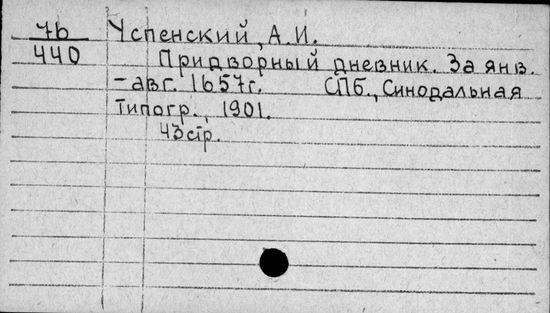 7b Успенский, А.И.
440 Придворный дневник. За янв.
- авг. 1657г. СПб., Синодальная
типогр., 1901.
43 стр.